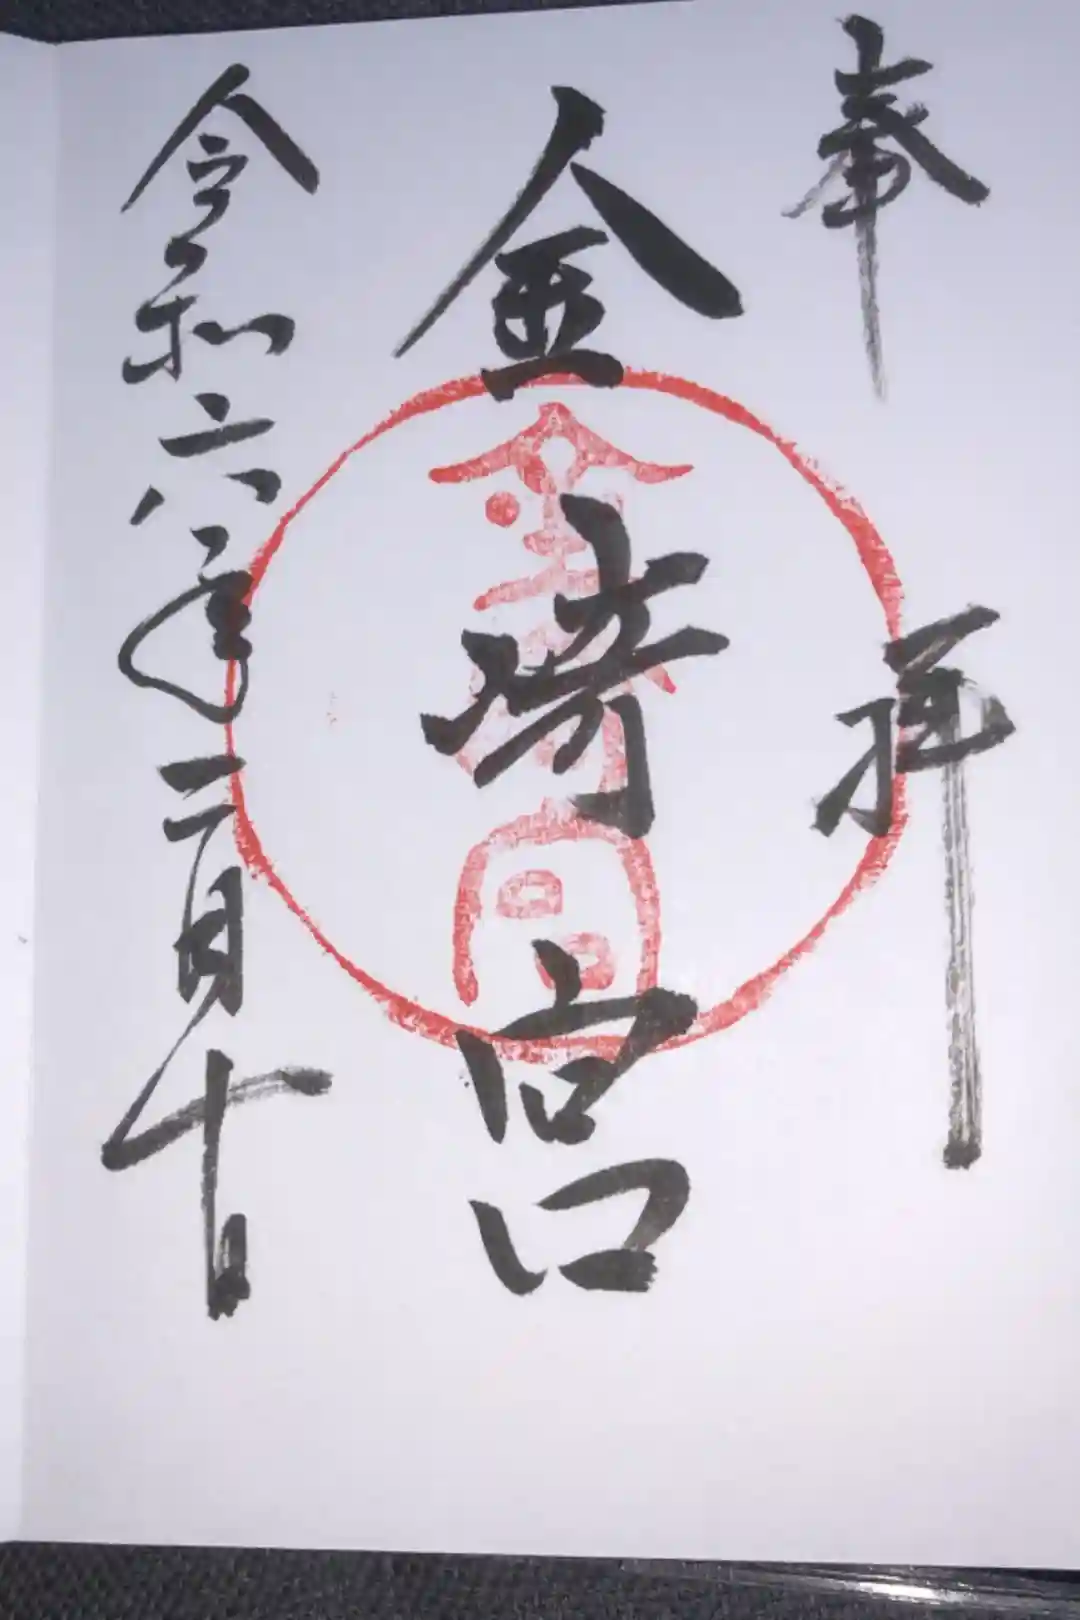 奉拝
金崎宮
金崎宮
令和六年二月十日